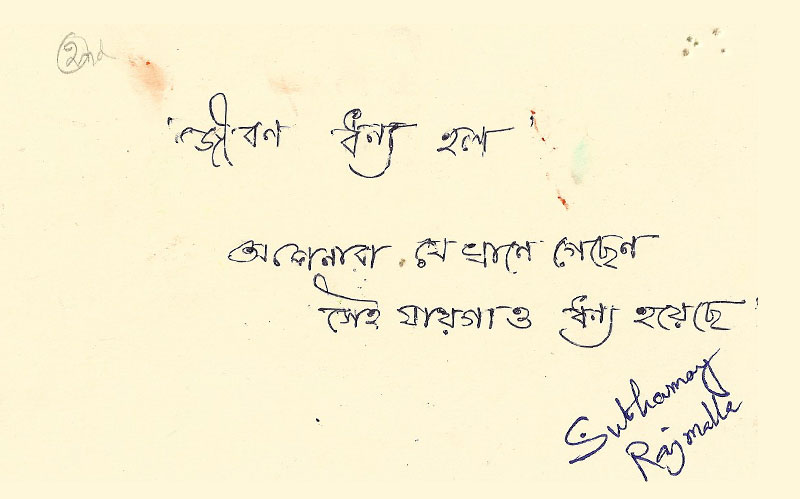 2nd
'জীবন ধন্য হল'
আপনারা যেখানে গেছেন
সেই যায়গাও ধন্য হয়েছে'
Subhamay
Rajmalla